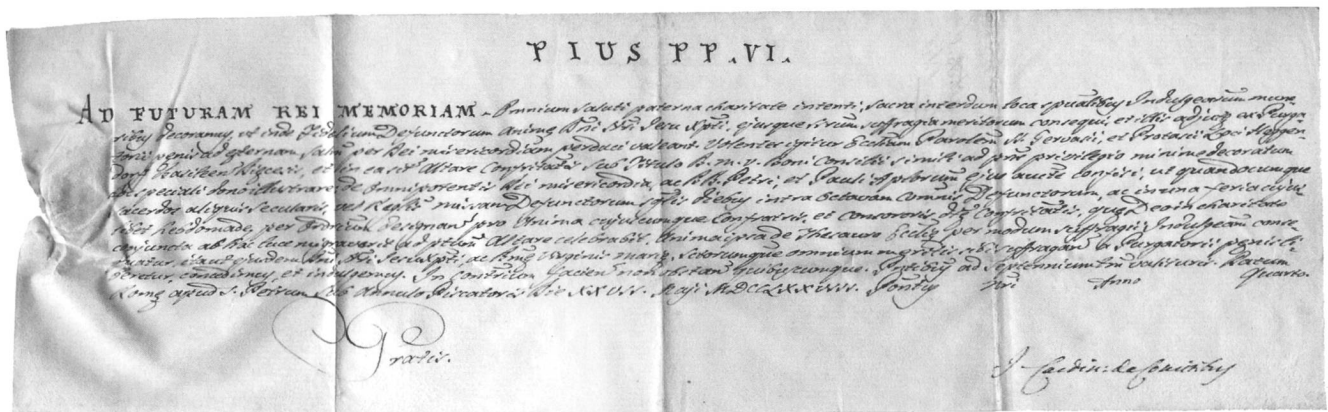 PIUS PP. VI.
AD FUTURAM REI MEMORIAM. Omnium saluti paterna charitate intenti, sacra interdum loca spualibus Indulgearum mune
ribus decoramus, ut inde fidelium Defunctorum animę Dni Nri Jesu Xpti, ejusque suffragia meritorum consequi, et illis adjutę ex Purga
torii penis ad ęternam salm per Dei misericordiam perduci valeant. Volentes igitur Ecclam Parolem SS. Gervasii, et Protasii Loci
Basileen Diœcesis, et in ea sit Altare Confrtatis sub titulo B. M. V. Boni Consilii simili ad pns privilegio minime decoratum
hoc speciali dono illustrare, de omnipotentis Dei misericordia, ac B.B. Petri, et Pauli Aplorum ejus aucte confisi, ut quandocunque
sacerdos aliquis secularis, vel Reglris missam Defunctorum diebus intra Octavam Defunctorum, ac in una feria cujus
libet hebdomadę, per Ordinm designan pro Anima cujuscunque Confratris, et Consororis Confrtatis, quę Deo in charitate
conjuncta ab hac luce migraverit ad Altare celebrabit, Anima ipsa de Thesauro Ecclię per modum suffragii Indulgeam conse
quatur, ita ut ejusdem Dni Nri Jesu Xpti, ac Bmę Virginis Marię, Sctorumque omnium meritis sibi suffragan a Purgatorii penis li
beretur, concedimus et indulgemus. In contrium facien non obstan quibuscunque. Pntibus ad Septennium tm valituris. Datum
Romę apud S. Petrum sub Annulo Piscatoris Die XXVII. Maji MDCCLXXVIIII. Pontus Nri Anno Quarto.
Gratis.
J. Cardin: de Comitibus